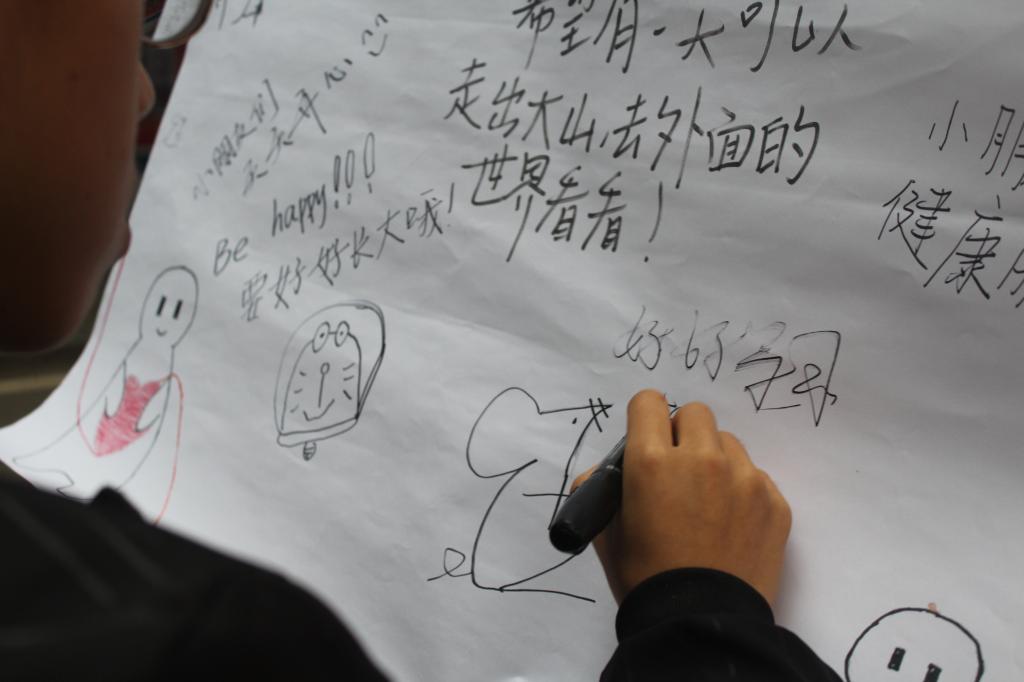 希望有一天可以
走出大山,去外面的
世界看看!
小朋友们
天天开心
Be happy!!!
要好好长大哦!
小朋
健康
好好学习